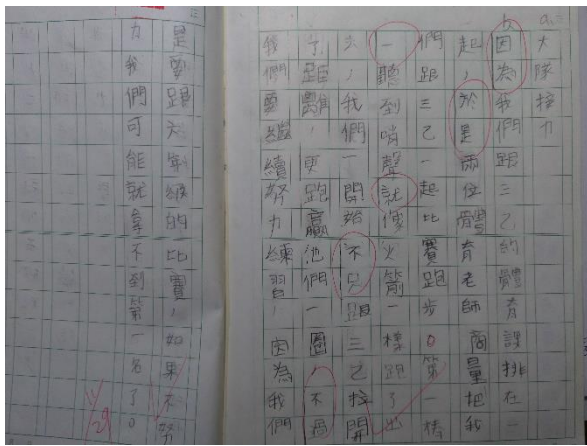 大隊接力
因為我們跟三乙的體育課排在一
起,於是兩位體育老師商量把我
們跟三乙一起比賽跑步。第一棒
一聽到哨聲就像火箭一樣跑了出
去,我們一開始不只跟三乙拉開
了距離,更跑贏他們一圈,不過
我們要繼續努力練習,因為我們
是要跟六年級的比賽,如果不努
力我們可能就拿不到第一名了。
11/29